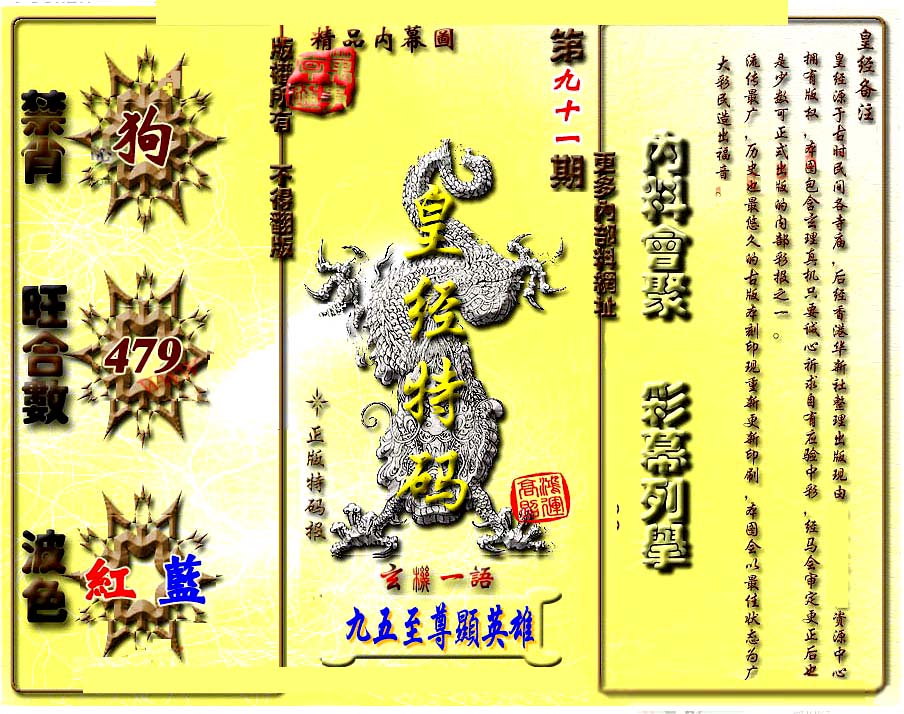 皇经备注
皇经源于古时民间各寺庙，后经香港华新社整理出版现由 资源中心
拥有版权，本图包含玄理真机只要诚心祈求自有应验中彩，经马会审定更正后也
是少数可正式出版的内部彩报之一。
流传最广，历史也最悠久的古版本刻印现重新更新印刷，本图会以最佳状态为广
大彩民造出福音
內料會聚 彩幕列舉
更多內部料網址
第九十一期
精品内幕圖
皇经特码
正版特码报
鸿運
高照
玄機一語
九五至尊顯英雄
版權所有 不得翻版
禁肖
狗
旺合數
479
波色
紅 藍